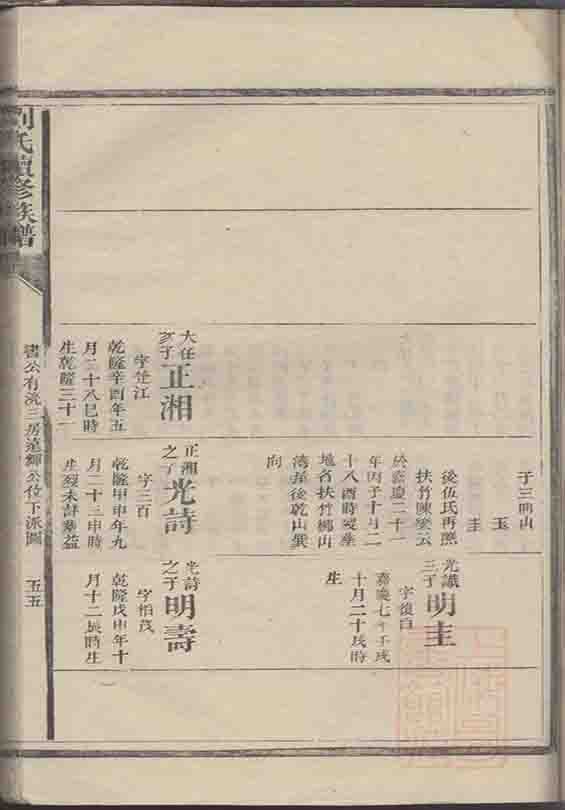 子三明山
玉
圭
後伍氏再醮
扶竹陳從云
於嘉慶二十一
年丙子十月二
十八酉時歿葬
地名扶竹鄉山
灣孫後乾山巽
向
光識
三子
明圭
字復白
嘉慶七年壬戌
十月二十戌時
生
大任
次子
正湘
字楚江
乾隆辛酉年五
月二十八巳時
生乾隆三十一
正湘
之子
光詩
字三百
乾隆甲申年九
月二十三申時
生歿未詳葬益
光詩
之子
明壽
字柏茂
乾隆戊申年十
月十二辰時生
劉氏續修族譜
書公有洸三房遠輝公位下派圖
五五